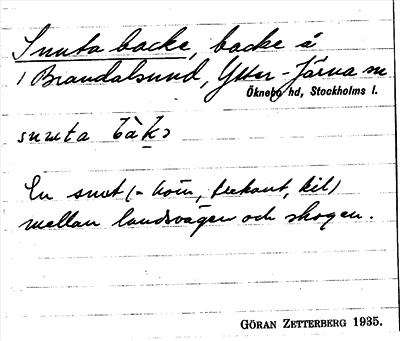 Snuta backe, backe å
i Brandalsund, Ytter-Järna sn
Öknebo hd, Stockholms l.
snuta bàkɔ
En snut (= hörn, trekant, kil)
mellan landsvägen och skogen.
GÖRAN ZETTERBERG 1935.